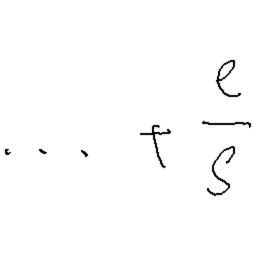 ... + \frac{e}{s}